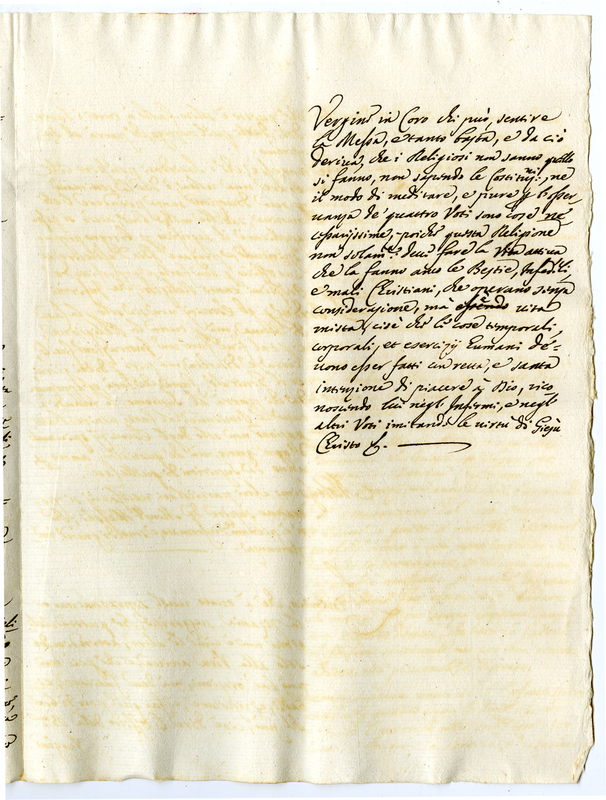 Vergine in Coro chi può, sentire
la Messa, e tanto basta, e da ciò
deriva, che i Religiosi non sanno quello
si fanno, non sapendo le Costituz.ni, ne
il modo di meditare, e pure p l'osser-
uanza de quattro Voti sono cose ne-
cessarissime, poiche questa Religione
non solam.te deue fare la Vita attiua
che la fanno anco le Bestie, Infedeli,
e mali Christiani, che operano senza
consideratione, mà uita
mista, cioè che le cose temporali,
corporali, et esercizij humani de-
uono esser fatti con retta, e santa
intenzione di piacere à Dio, rico
noscendo lui negl' Infermi, e negl'
altri Voti imitando le uirtù di Giesù
Christo